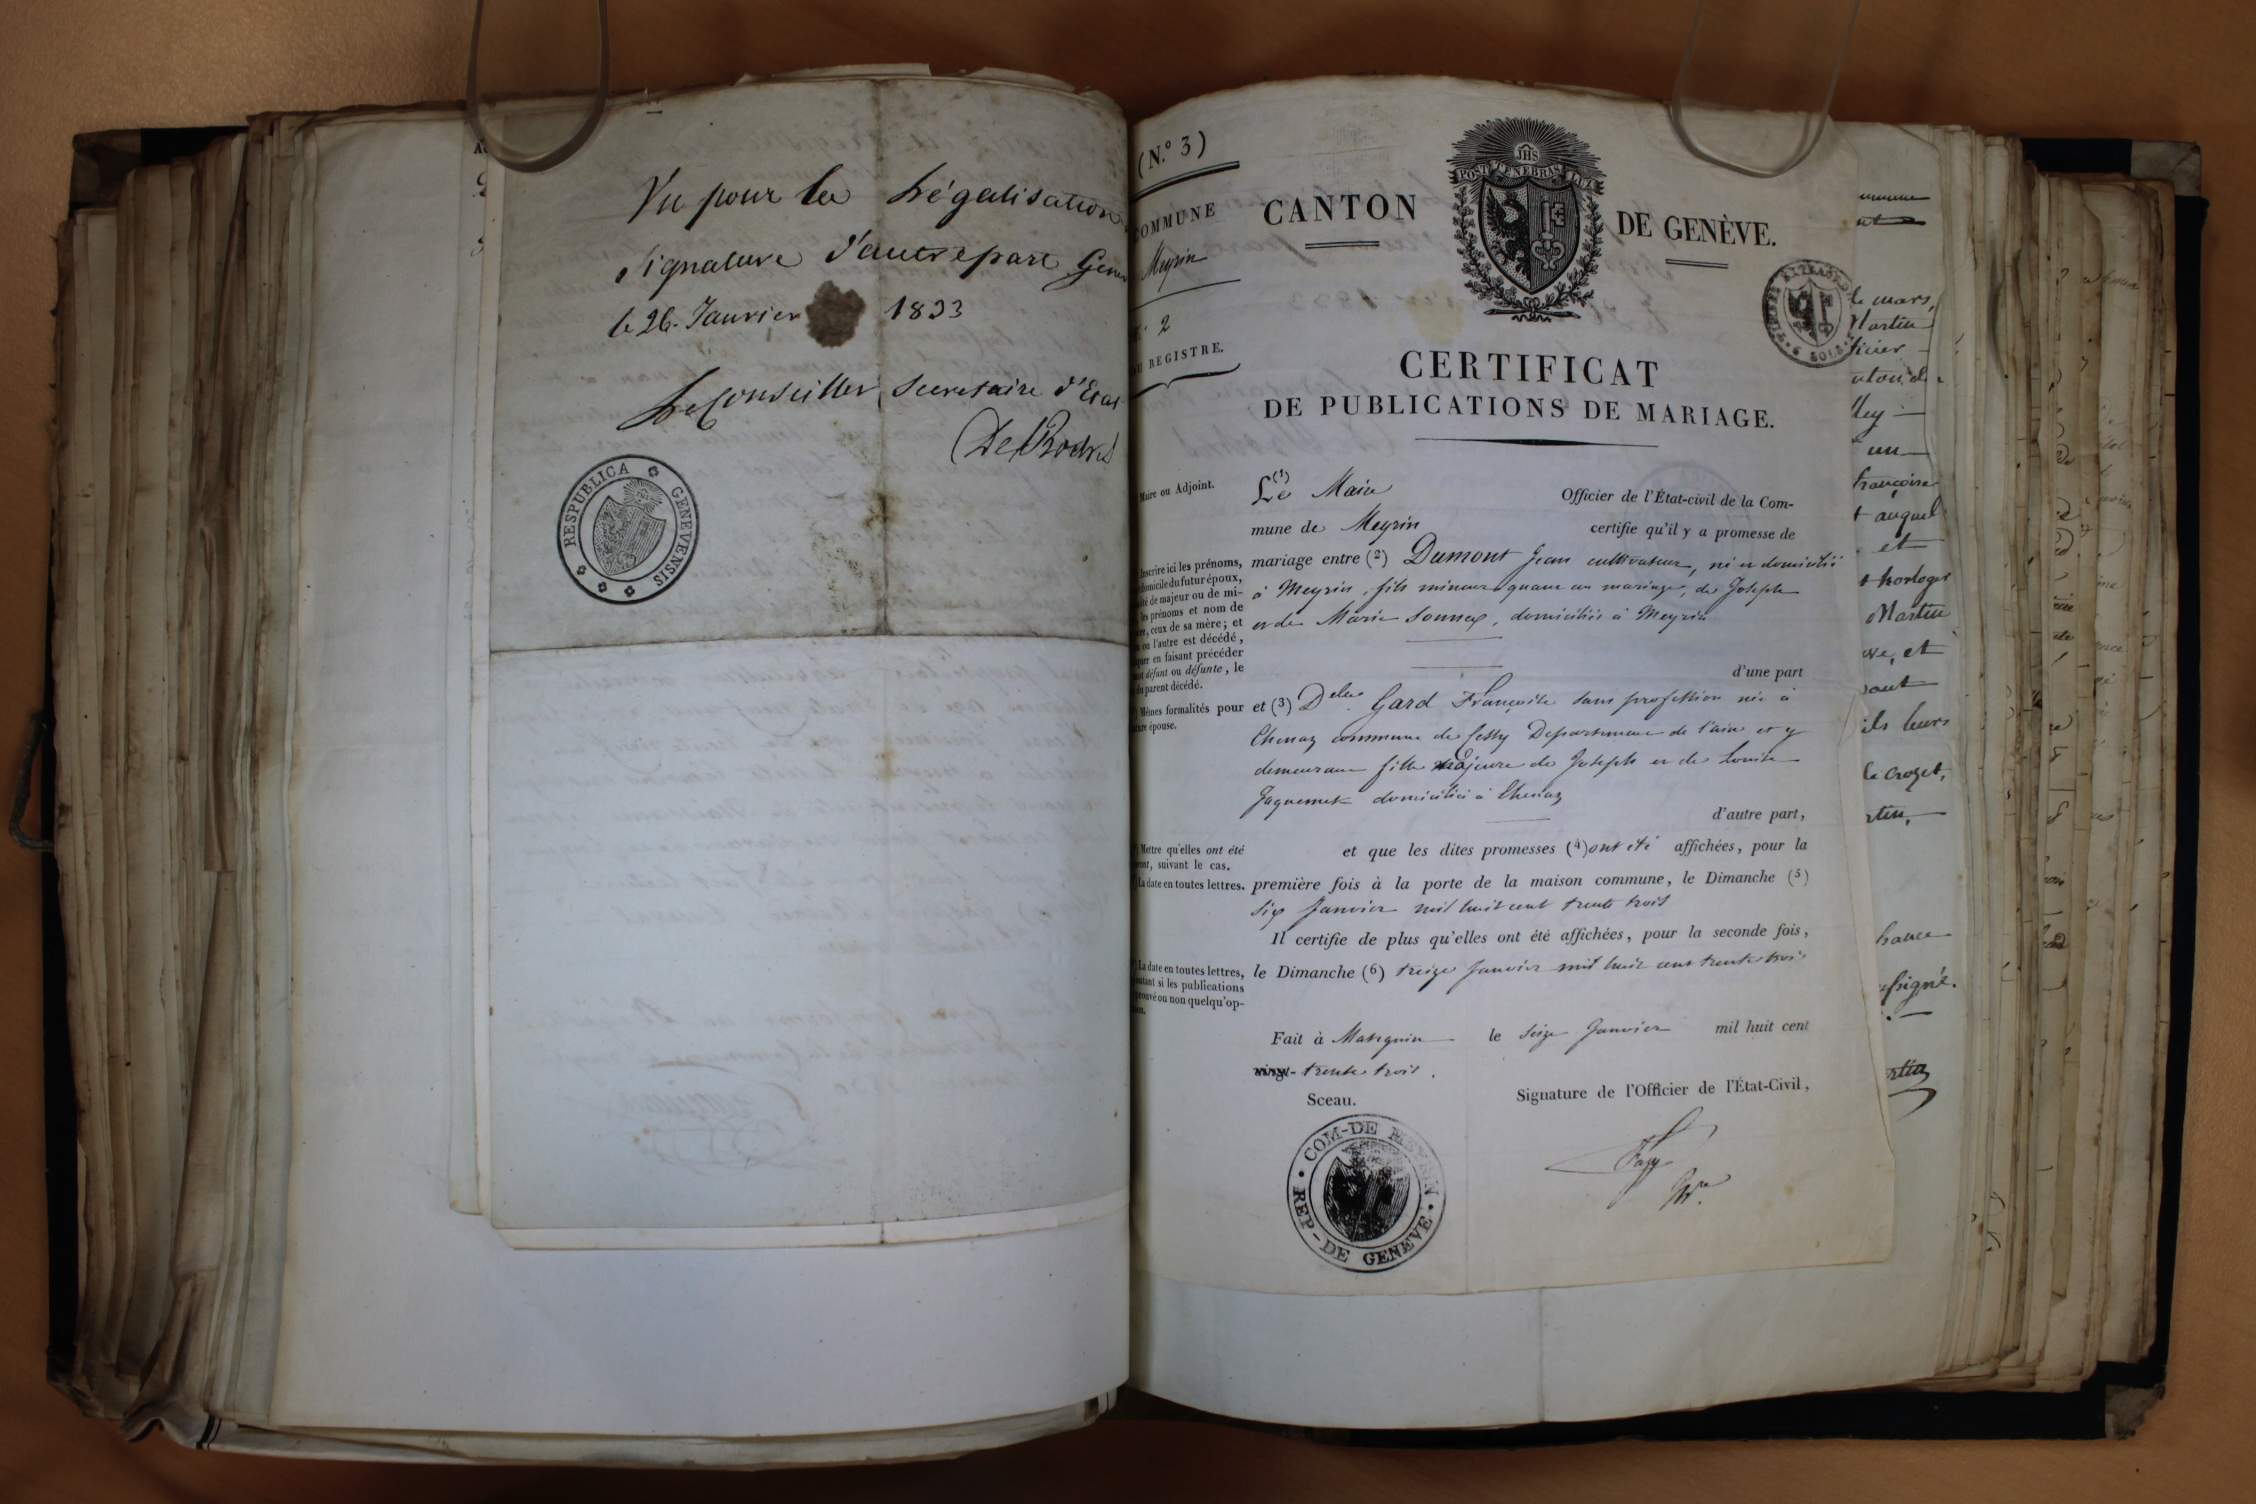 Vu pour la Légalisation
signature d'autre part
le 26. Janvier 1833
Le Conseiller Secretaire d'Etat
RESPUBLICA GENEVENSIS
(N.º 3)
COMMUNE
Meyrin
2
REGISTRE.
CANTON DE GENÈVE.
JHS
POST TENEBRAS LUX
CERTIFICAT
DE PUBLICATIONS DE MARIAGE.
Maire ou Adjoint.
Le (1) Maire Officier de l'État-civil de la Com-
mune de Meyrin certifie qu'il y a promesse de
mariage entre (2) Dumont Jean cultivateur, né et domicilié
à Meyrin, fils mineur quant au mariage, de Joseph
et de Marie Sonnex, domiciliés à Meyrin
d'une part
Inscrire ici les prénoms,
domicile du futur époux,
de majeur ou de mi-
les prénoms et nom de
ceux de sa mère; et
ou l'autre est décédé,
en faisant précéder
défunt ou défunte, le
parent décédé.
Mêmes formalités pour
épouse.
et (3) Delle Gard Françoise sans profession née à
Chenaz commune de Cessy Departement de l'ain et y
demeurant fille majeure de Joseph et de Louise
Jaquemet domiciliés à Chenaz
d'autre part,
Mettre qu'elles ont été
suivant le cas.
La date en toutes lettres.
et que les dites promesses (4) ont été affichées, pour la
première fois à la porte de la maison commune, le Dimanche (5)
six Janvier mil huit cent trente trois
Il certifie de plus qu'elles ont été affichées, pour la seconde fois,
le Dimanche (6) treize Janvier mil huit cent trente trois
La date en toutes lettres,
si les publications
ou non quelqu'op-
Fait à le seize Janvier mil huit cent
vingt- trente trois.
Sceau.
Signature de l'Officier de l'État-Civil,
COM-DE MEYRIN
REP-DE GENEVE
le mars,
Martin
un
françoise
auquel
et
horloger
Martin
et
ils leurs
le crozet,